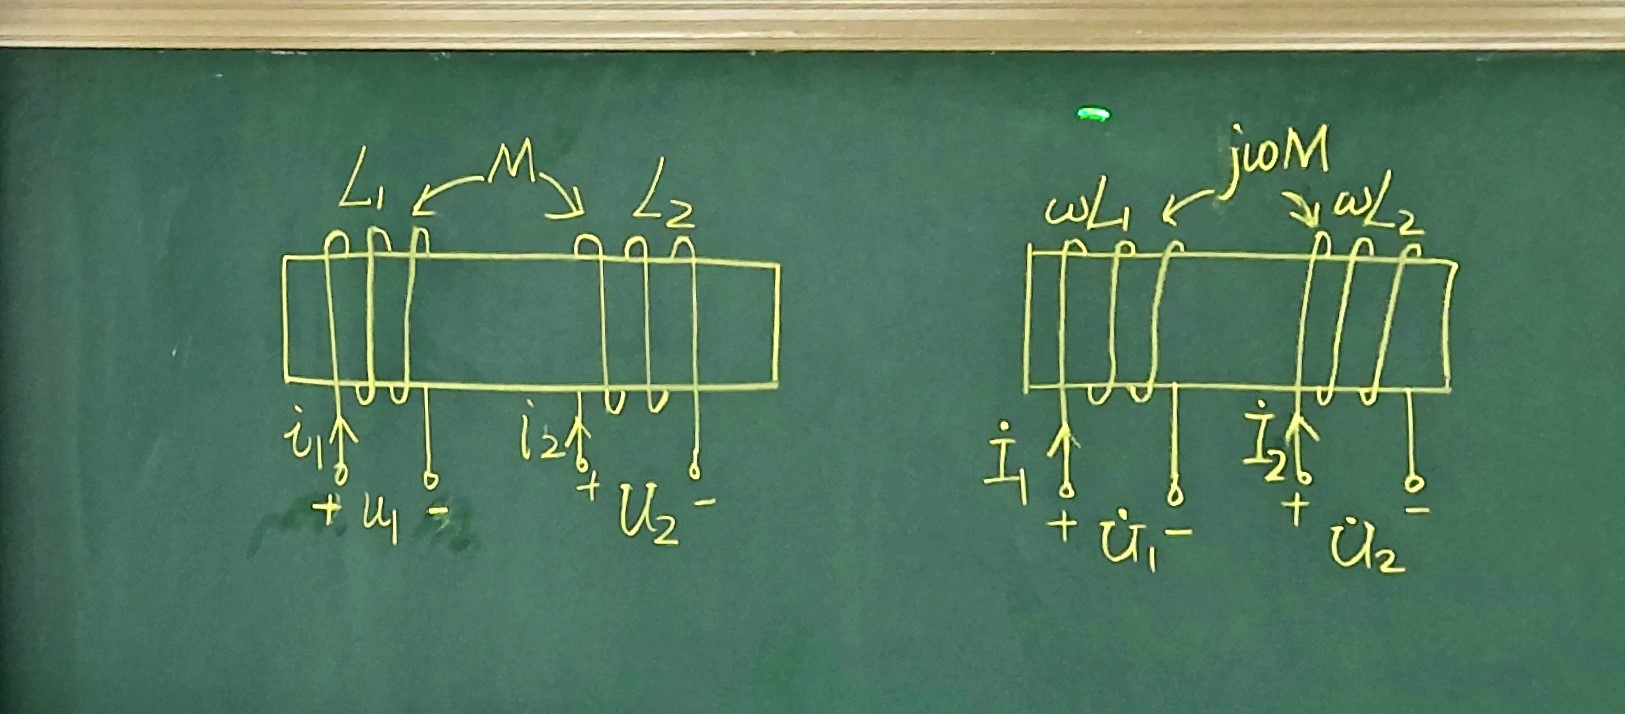 L₁ M L₂
i₁ i₂
+ u₁ - + U₂ -
jωM
ωL₁ ωL₂
İ₁ İ₂
+ U̇₁ - + U̇₂ -